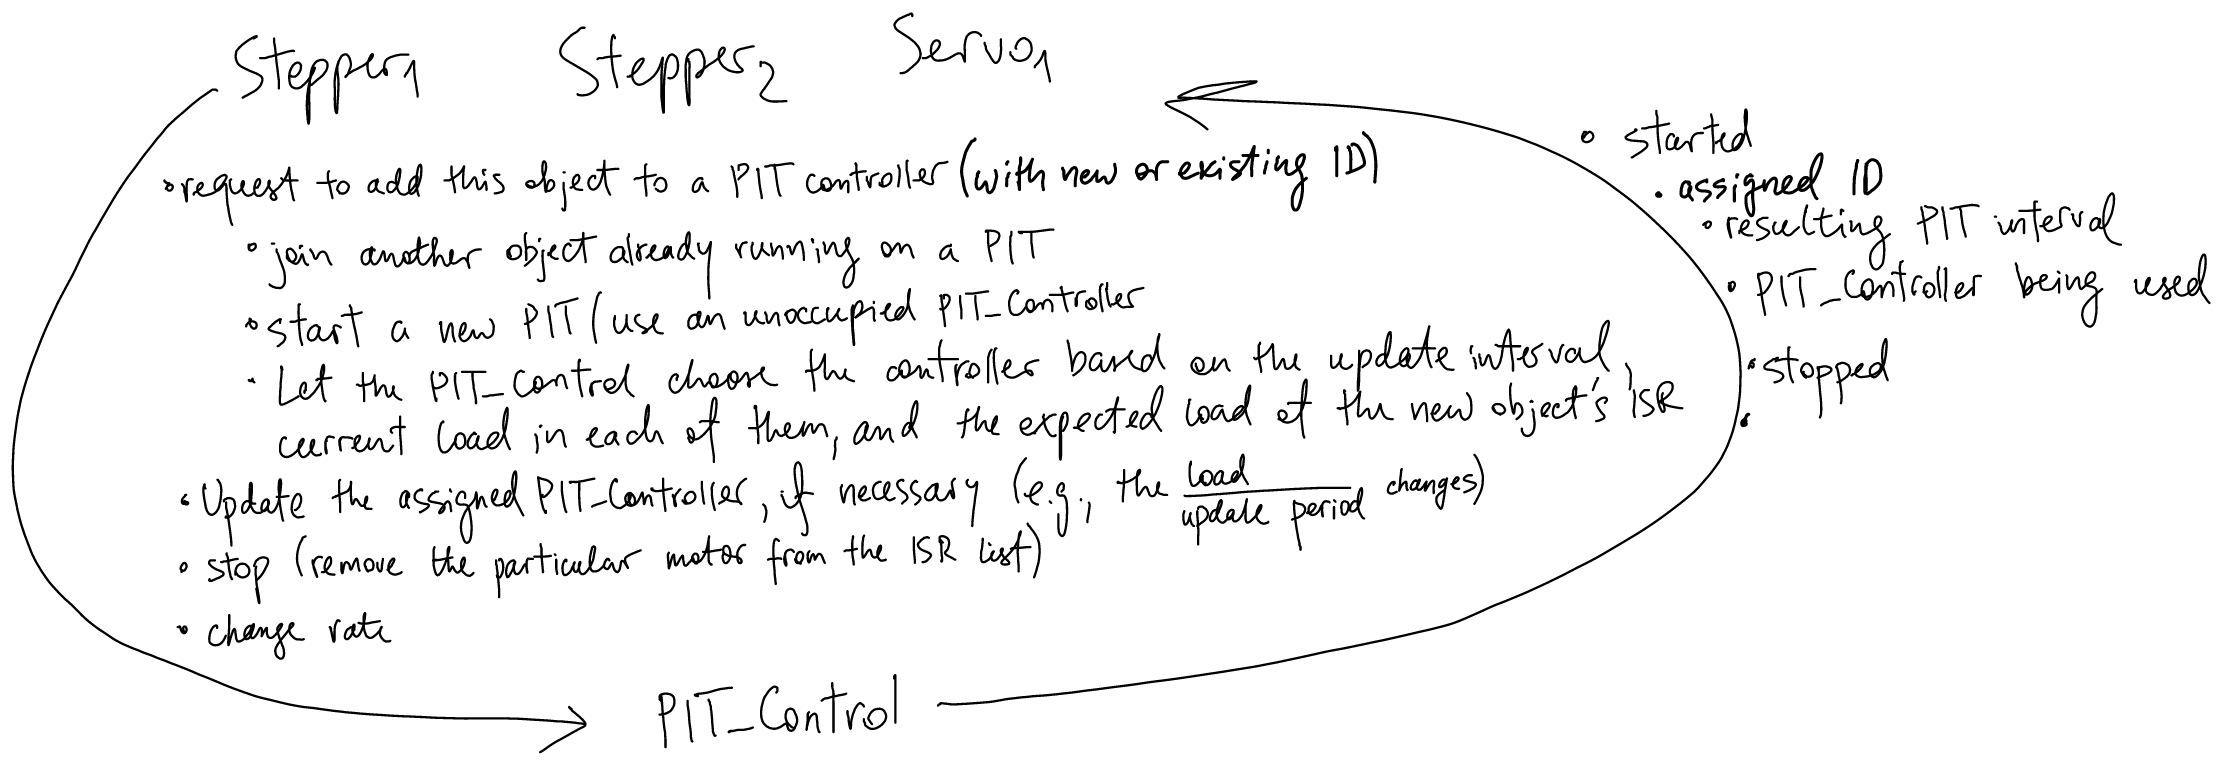 Stepper1 Stepper2 Servo1
• request to add this object to a PIT controller (with new or existing ID)
• join another object already running on a PIT
• start a new PIT (use an unoccupied PIT_Controller
• Let the PIT_Control choose the controller based on the update interval,
current load in each of them, and the expected load of the new object's ISR
• Update the assigned PIT_Controller, if necessary (e.g., the load/update period changes)
• stop (remove the particular motor from the ISR list)
• change rate
• started
• assigned ID
• resulting PIT interval
• PIT_Controller being used
• stopped
•
PIT_Control